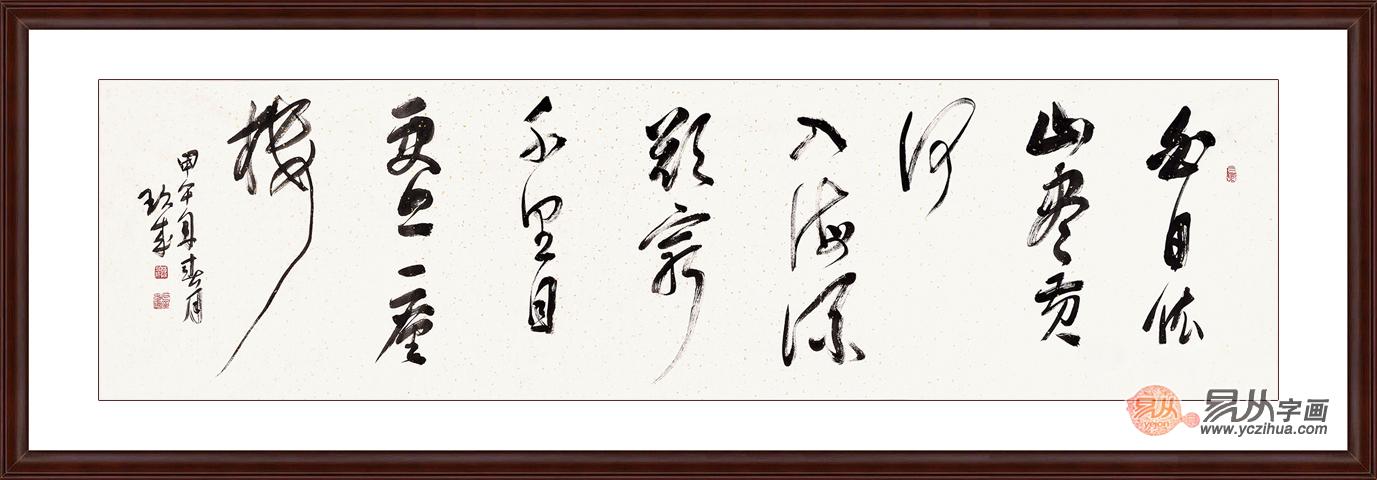 白日依
山盡黄
河
入海流
欲窮
千里目
更上一層
樓
甲午年春月
易从
yejon
易从字画
www.yczihua.com